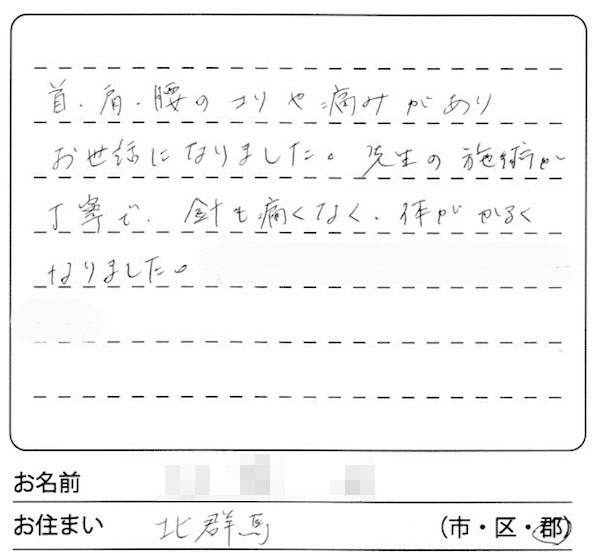 首、肩、腰のコリや痛みがあり
お世話になりました。先生の施術が
丁寧で、針も痛くなく、体がかるく
なりました。
お名前
お住まい 北群馬 (市・区・郡)